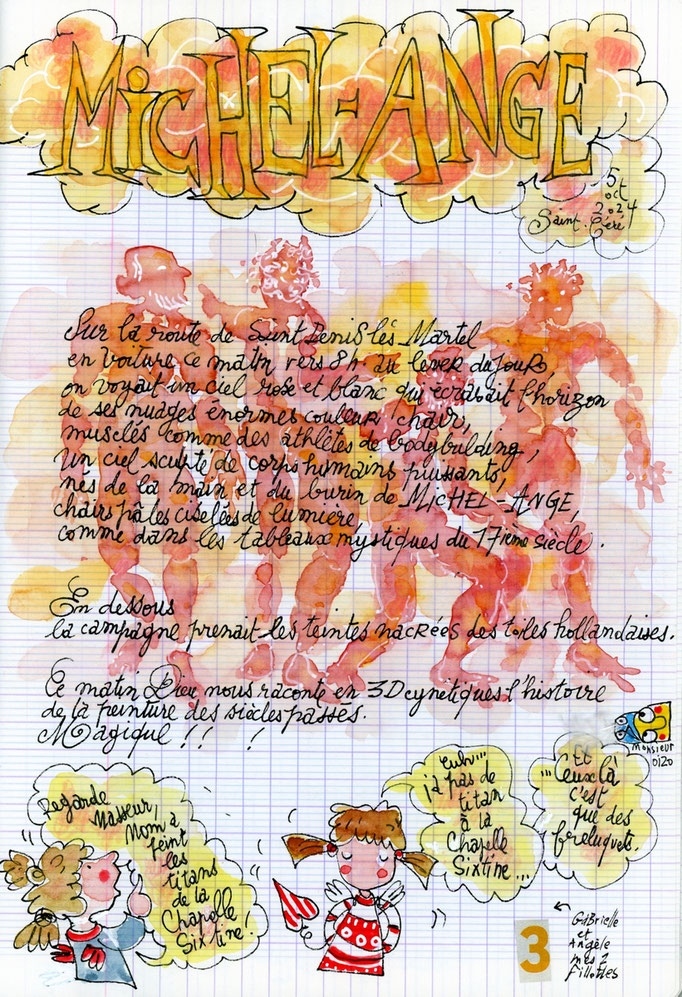 MICHEL-ANGE
5
oct
2024
Saint. Céré
Sur la route de Saint Denis lés Martel
en voiture ce matin vers 8h au lever du jour,
on voyait un ciel rose et blanc qui écrasait l'horizon
de ses nuages énormes couleur chair,
musclés comme des athlètes de bodybuilding,
un ciel sculpté de corps humains puissants,
nés de la main et du burin de MICHEL-ANGE,
chairs pâles ciselées de lumière,
comme dans les tableaux mystiques du 17ieme siècle.
En dessous
la campagne prenait les teintes nacrées des toiles hollandaises.
Ce matin Dieu nous raconte en 3D cynétiques l'histoire
de la peinture des siècles passés.
Magique !! !
Monsieur
0120
Regarde
Masseur,
Mom a
peint
les
titans
de la
Chapelle
Sixtine !
Euh...
i'a pas de
titan
à la
Chapelle
Sixtine...
Et
... Ceux là
c'est
que des
freluquets.
3
GABrielle
et
Angèle
mes 2
fillottes